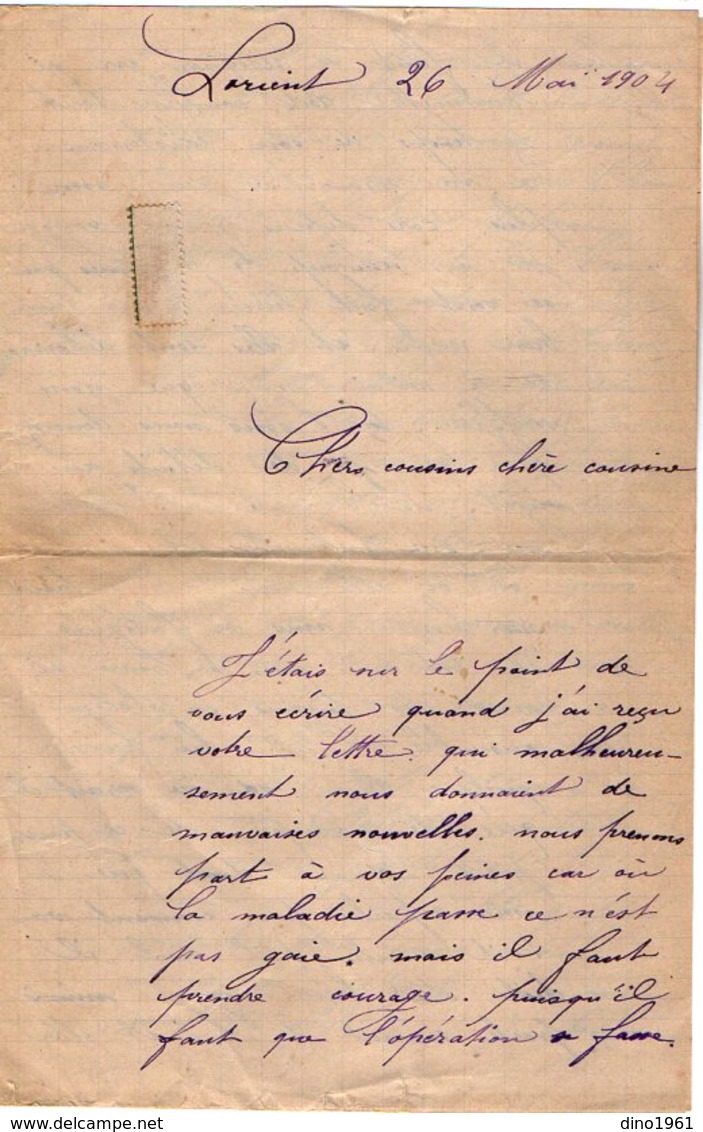 Lorient 26 Mai 1904
Chers cousins chère cousine
J'étais sur le point de
vous écrire quand j'ai reçu
votre lettre. qui malheureu-
sement nous donnaient de
mauvaises nouvelles. nous prenons
part à vos peines car où
la maladie passe ce n'est
pas gaie. mais il faut
prendre courage. puisqu'il
faut que l'opération se fasse.
dino1961